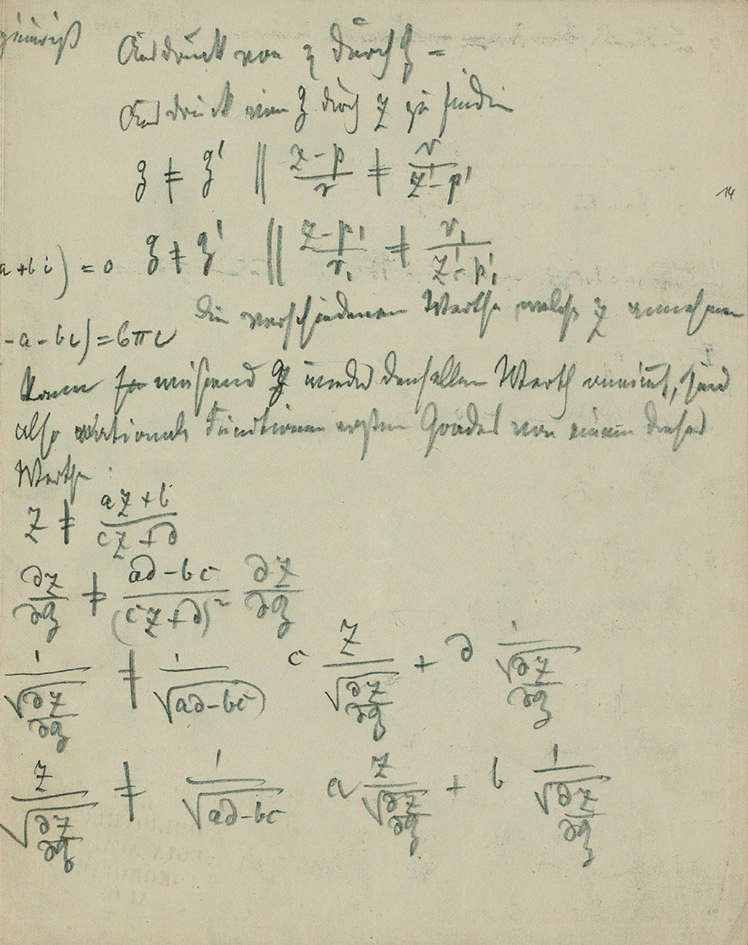 Ausdruck von z durch ʒ =
Ausdruck von ʒ durch z zu finden
ʒ ≠ ʒ' || (z-p)/r ≠ r/(z'-p')
a+bi) = 0 ʒ ≠ ʒ' || (z-p₁)/r₁ ≠ r₁/(z'-p'₁)
14
Die verschiedenen Werthe welche z annehmen
-a-bi)=6πi
kann während ʒ wieder denselben Werth annimmt, sind
also rationale Functionen ersten Grades von einem dieser
Werthe.
z ≠ (az+b)/(cz+∂)
∂z/∂ʒ ≠ (a∂-bc)/(cz+∂)² ∂z/∂ʒ
1/√(∂z/∂ʒ) ≠ 1/√(a∂-bc) c z/√(∂z/∂ʒ) + ∂ 1/√(∂z/∂ʒ)
z/√(∂z/∂ʒ) ≠ 1/√(a∂-bc) a z/√(∂z/∂ʒ) + b 1/√(∂z/∂ʒ)